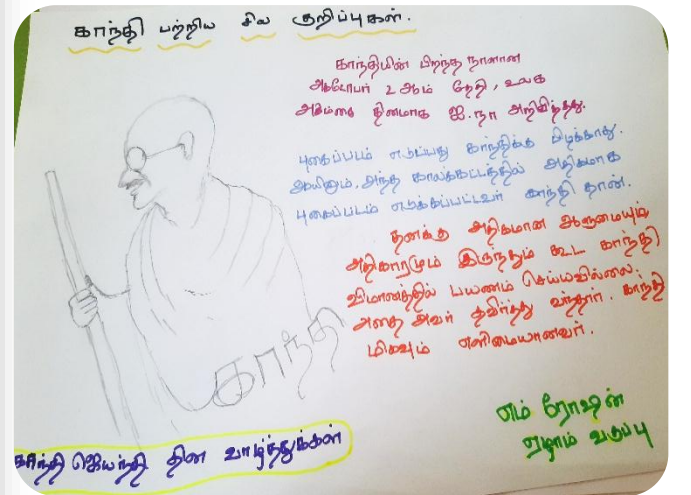 காந்தி பற்றிய சில குறிப்புகள்.
காந்தியின் பிறந்த நாளான
அக்டோபர் 2 ஆம் தேதி, உலக
அகிம்சை தினமாக ஐ.நா அறிவித்தது.
புகைப்படம் எடுப்பது காந்திக்கு பிடிக்காது.
ஆயினும், அந்த காலக்கட்டத்தில் அதிகமாக
புகைப்படம் எடுக்கப்பட்டவர் காந்தி தான்.
தனக்கு அதிகமான ஆளுமையும்
அதிகாரமும் இருந்தும் கூட காந்தி
விமானத்தில் பயணம் செய்யவில்லை.
அதை அவர் தவிர்த்து வந்தார். காந்தி
மிகவும் எளிமையானவர்.
காந்தி
எம் ரோஷன்
ஏழாம் வகுப்பு
காந்தி ஜெயந்தி தின வாழ்த்துக்கள்